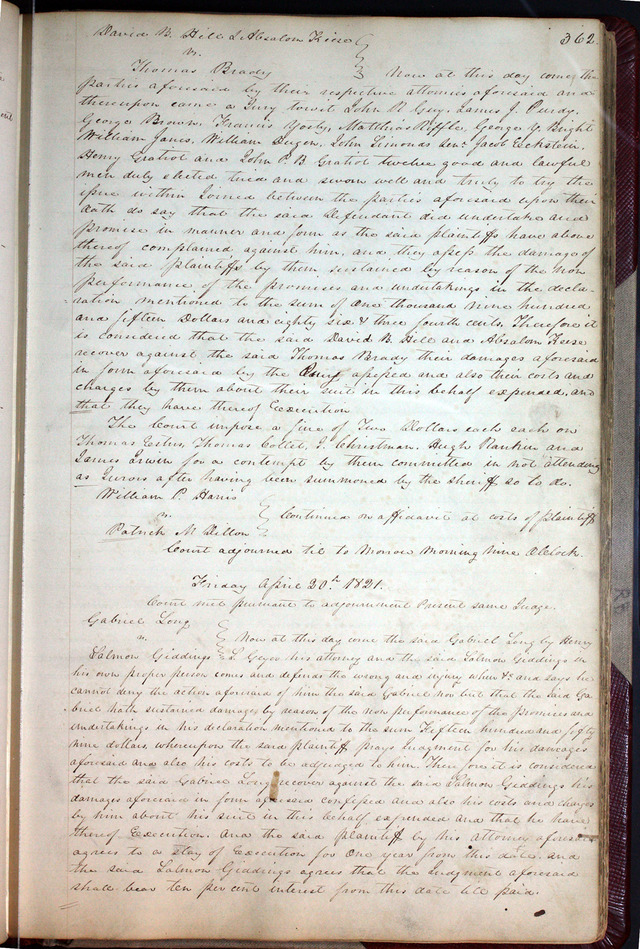 David B. Hill & Absalom Kiese 362
vs.
Thomas Brady Now at this day come the
parties aforesaid by their respective attornies aforesaid and
thereupon came a Jury towit John N Guy, James J. Purdy,
George Brown, Francis Yosty, Matthias Riffle, George Y. Bright
William Janes, William Dugen, John Simonds Senr. Jacob Eckstein,
Henry Gratiot and John P. B Gratiot twelve good and lawful
men duly elected tried and sworn well and truly to try the
issue within Joined between the parties aforesaid upon their
oath do say that the said Defendant did undertake and
promise in manner and form as the said plaintiffs have above
thereof complained against him, and they assess the damage of
the said plaintiffs by them sustained by reason of the non
performance of the promises and undertakings in the decla-
ration mentioned to the sum of One thousand Nine hundred
and fifteen Dollars and eighty six & three fourth cents. Therefore it
is considered that the said David B. Hill and Absalom Kiese
recover against the said Thomas Brady their damages aforesaid
in form aforesaid by the Jury assessed and also their costs and
charges by them about their suit in this behalf expended, and
that they have thereof Execution
The Court impose a fine of Two Dollars each each on
Thomas Estes, Thomas Collet, J. Christman, Hugh Rankin and
James Irwin for a contempt by them committed in not attending
as Jurors after having been summoned by the sheriff so to do.
William P. Harris
vs. Continued on affidavit at costs of plaintiff
Patrick M Dillon
Court adjourned til to Morrow Morning Nine OClock.
Friday April 20th. 1821.
Court met pursuant to adjournment Present same Judge.
Gabriel Long
vs. Now at this day come the said Gabriel Long by Henry
Salmon Giddings S. Geyer his attorney and the said Salmon Giddings in
his own proper person comes and defends the wrong and injury when &c and says he
cannot deny the action aforesaid of him the said Gabriel nor but that the said Ga-
briel hath sustained damages by reason of the non performance of the promises and
undertakings in his declaration mentioned to the sum Fifteen hundred and fifty
nine dollars, whereupon the said plaintiff prays Judgment for his damages
aforesaid and also his costs to be adjudged to him. Therefore it is considered
that the said Gabriel Long recover against the said Salmon Giddings his
damages aforesaid in form aforesaid confessed and also his costs and charges
by him about his suit in this behalf expended and that he have
thereof Execution. And the said plaintiff by his attorney aforesaid
agrees to a stay of Execution for One year from this date. and
the said Salmon Giddings agrees that the Judgment aforesaid
shall bear ten per cent interest from this date till paid.